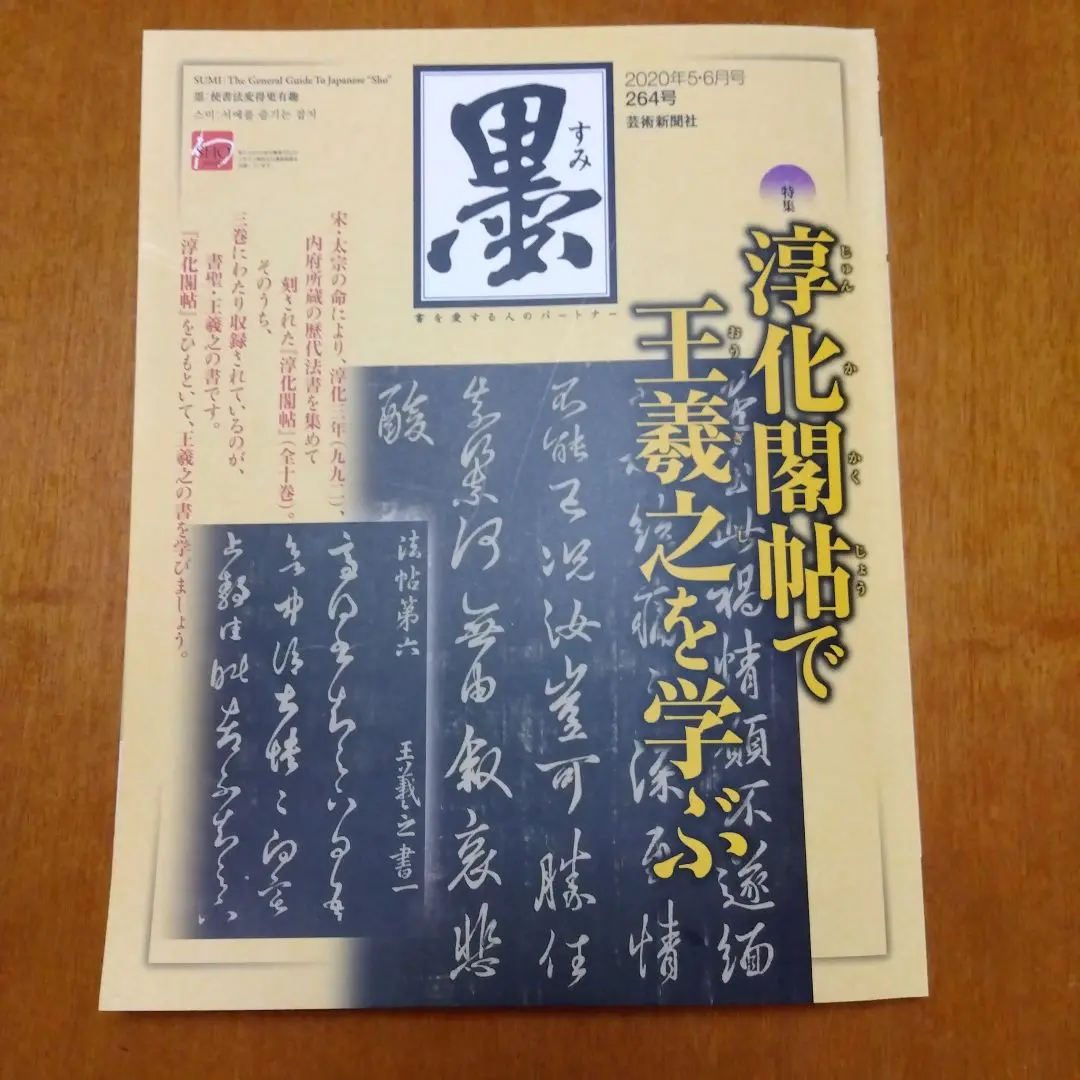 SUMI: The General Guide To Japanese "Sho"
墨:使書法変得更有趣
스미:서예를 즐기는 잡지
SHO
墨
すみ
書を愛する人のパートナー
2020年5・6月号
264号
芸術新聞社
特集
淳化閣帖で
じゅんかかくじょう
王羲之を学ぶ
おうぎし
宋・太宗の命により、淳化三年(九九二)、
内府所蔵の歴代法書を集めて
刻された『淳化閣帖』(全十巻)。
そのうち、
三巻にわたり収録されているのが、
書聖・王羲之の書です。
『淳化閣帖』をひもといて、王羲之の書を学びましょう。
此禍情煩不遂緬
深至情
不能已況汝豈可勝任
奈何無由叙哀悲
酸
法帖第六
王羲之書一